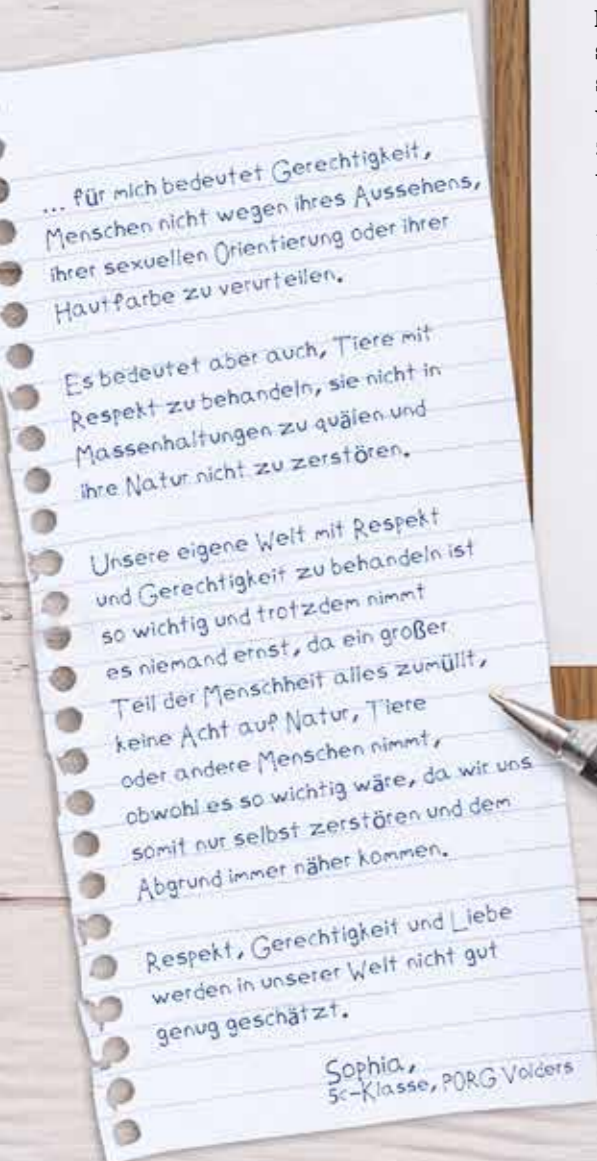 ... für mich bedeutet Gerechtigkeit,
Menschen nicht wegen ihres Aussehens,
ihrer sexuellen Orientierung oder ihrer
Hautfarbe zu verurteilen.
Es bedeutet aber auch, Tiere mit
Respekt zu behandeln, sie nicht in
Massenhaltungen zu quälen und
ihre Natur nicht zu zerstören.
Unsere eigene Welt mit Respekt
und Gerechtigkeit zu behandeln ist
so wichtig und trotzdem nimmt
es niemand ernst, da ein großer
Teil der Menschheit alles zumüllt,
keine Acht auf Natur, Tiere
oder andere Menschen nimmt,
obwohl es so wichtig wäre, da wir uns
somit nur selbst zerstören und dem
Abgrund immer näher kommen.
Respekt, Gerechtigkeit und Liebe
werden in unserer Welt nicht gut
genug geschätzt.
Sophia,
5c-Klasse, PORG Volders